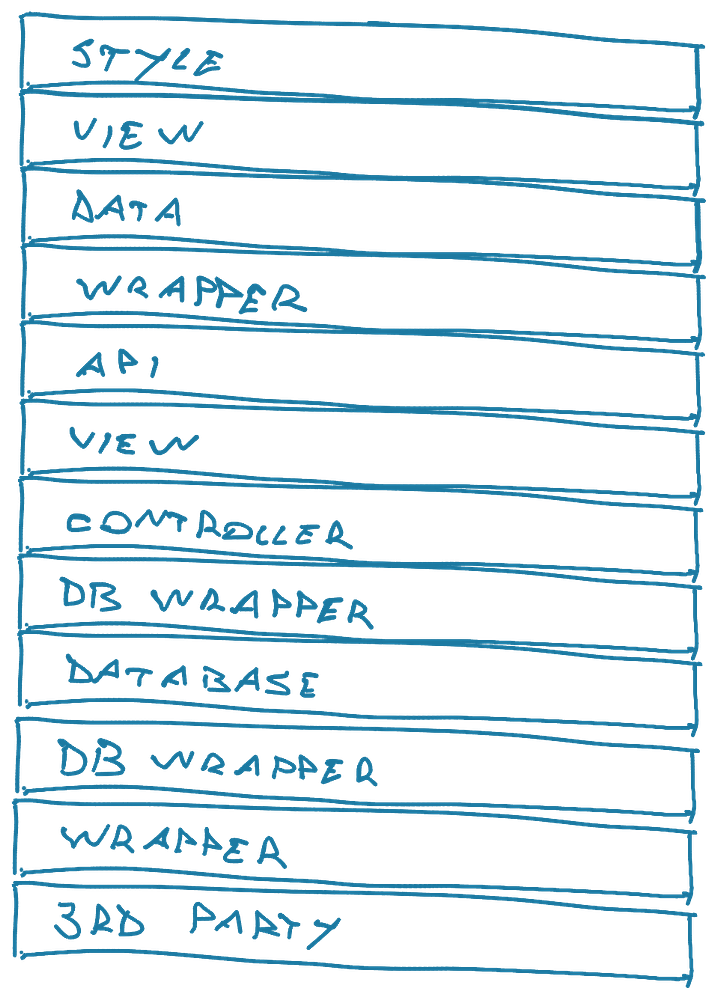 STYLE
VIEW
DATA
WRAPPER
API
VIEW
CONTROLLER
DB WRAPPER
DATABASE
DB WRAPPER
WRAPPER
3RD PARTY